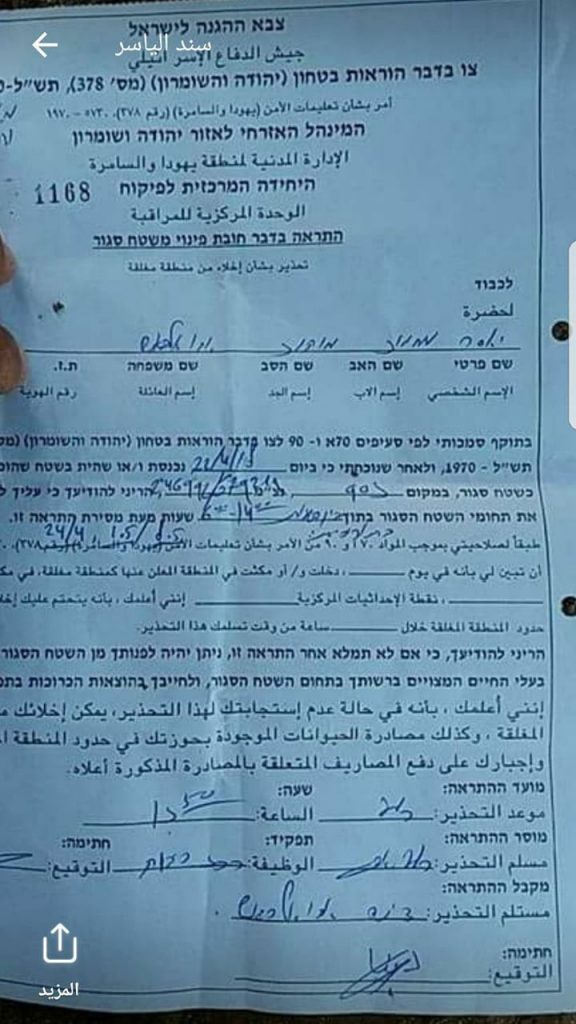 סند الياسر
צבא ההגנה לישראל
جيش الدفاع الإسرائيلي
צו בדבר הוראות בטחון (יהודה והשומרון) (מס' 378), תש"ל-
أمر بشأن تعليمات الأمن (يهودا والسامرة) (رقم ٣٧٨)، ٥٧٣٠ - ١٩٧٠
המינהל האזרחי לאזור יהודה ושומרון
الإدارة المدنية لمنطقة يهودا والسامرة
היחידה המרכזית לפיקוח
1168
الوحدة المركزية للمراقبة
התראה בדבר חובת פינוי משטח סגור
تحذير بشأن إخلاء من منطقة مغلقة
לכבוד
لحضرة
שם פרטי שם האב שם הסב שם משפחה ת.ז.
الإسم الشخصي إسم الاب إسم الجد إسم العائلة رقم الهوية
בתוקף סמכותי לפי סעיפים 70א ו- 90 לצו בדבר הוראות בטחון (יהודה והשומרון)
תש"ל - 1970, ולאחר שנוכחתי כי ביום נכנסת ו/או שהית בשטח
כשטח סגור, במקום הריני להודיעך כי עליך
את תחומי השטח הסגור בתוך שעות מעת מסירת התראה זו.
طبقاً لصلاحيتي بموجب المواد ٧٠أ و ٩٠ من الأمر بشأن تعليمات الأمن (يهودا والسامرة)
أن تبين لي بأنه في يوم دخلت و/أو مكثت في المنطقة المعلن عنها كمنطقة مغلقة،
، نقطة الإحداثيات المركزية إنني أعلمك، بأنه يتحتم عليك
حدود المنطقة المغلقة خلال ساعة من وقت تسلمك هذا التحذير.
הריני להודיעך, כי אם לא תמלא אחר התראה זו, ניתן יהיה לפנותך מן השטח הסגור
בעלי החיים המצויים ברשותך בתחום השטח הסגור, ולחייבך בהוצאות הכרוכות
إنني أعلمك، بأنه في حالة عدم إستجابتك لهذا التحذير، يمكن إخلائك
المغلقة، وكذلك مصادرة الحيوانات الموجودة بحوزتك في حدود المنطقة
وإجبارك على دفع المصاريف المتعلقة بالمصادرة المذكورة أعلاه.
מועד ההתראה: שעה:
موعد التحذير: الساعة:
מוסר ההתראה: תפקיד: חתימה:
مسلم التحذير: الوظيفة: التوقيع:
מקבל ההתראה:
مستلم التحذير:
חתימה:
التوقيع:
المزيد